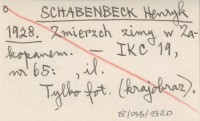 SCHABENBECK Henryk
1928. Zmierzch zimy w Za-
kopanem. — IKC 19,
nr 65: , il.
Tylko fot. (krajobraz).
BT/045/1320